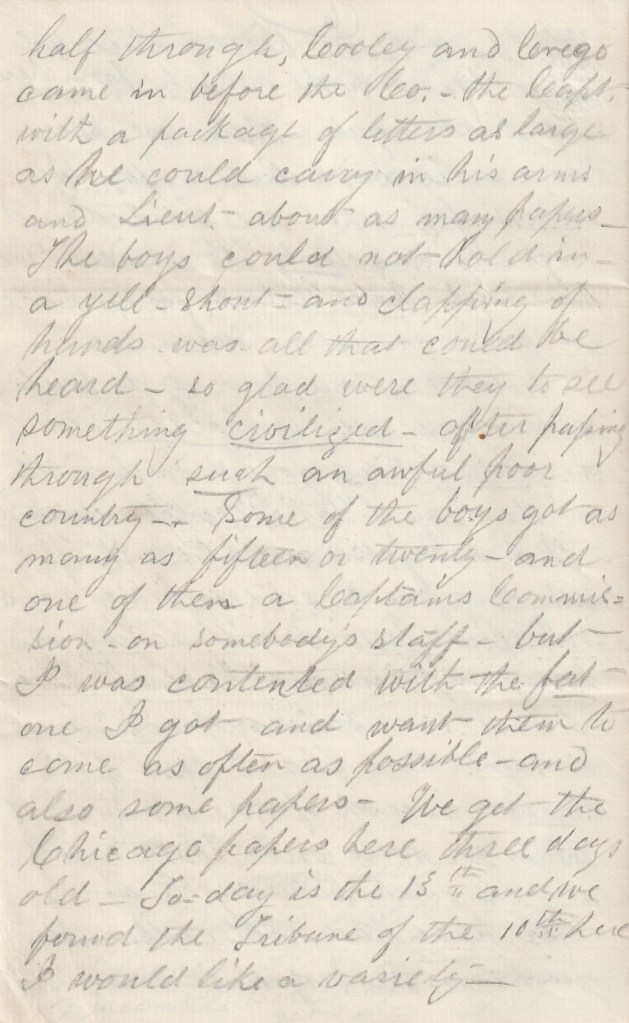 half through, Cooley and Crego
came in before the Co. - the Capt.
with a package of letters as large
as he could carry in his arms
and Lieut - about as many papers -
The boys could not hold in -
a yell - shout - and clapping of
hands was all that could be
heard - so glad were they to see
something civilized - after passing
through such an awful poor
country - . Some of the boys got as
many as fifteen or twenty - and
one of them a Captains Commis=
sion - on somebody's staff - but
I was contented with the fat
one I got and want them to
come as often as possible - and
also some papers - We get the
Chicago papers here three days
old - To-day is the 13th and we
found the Tribune of the 10th here
I would like a variety -